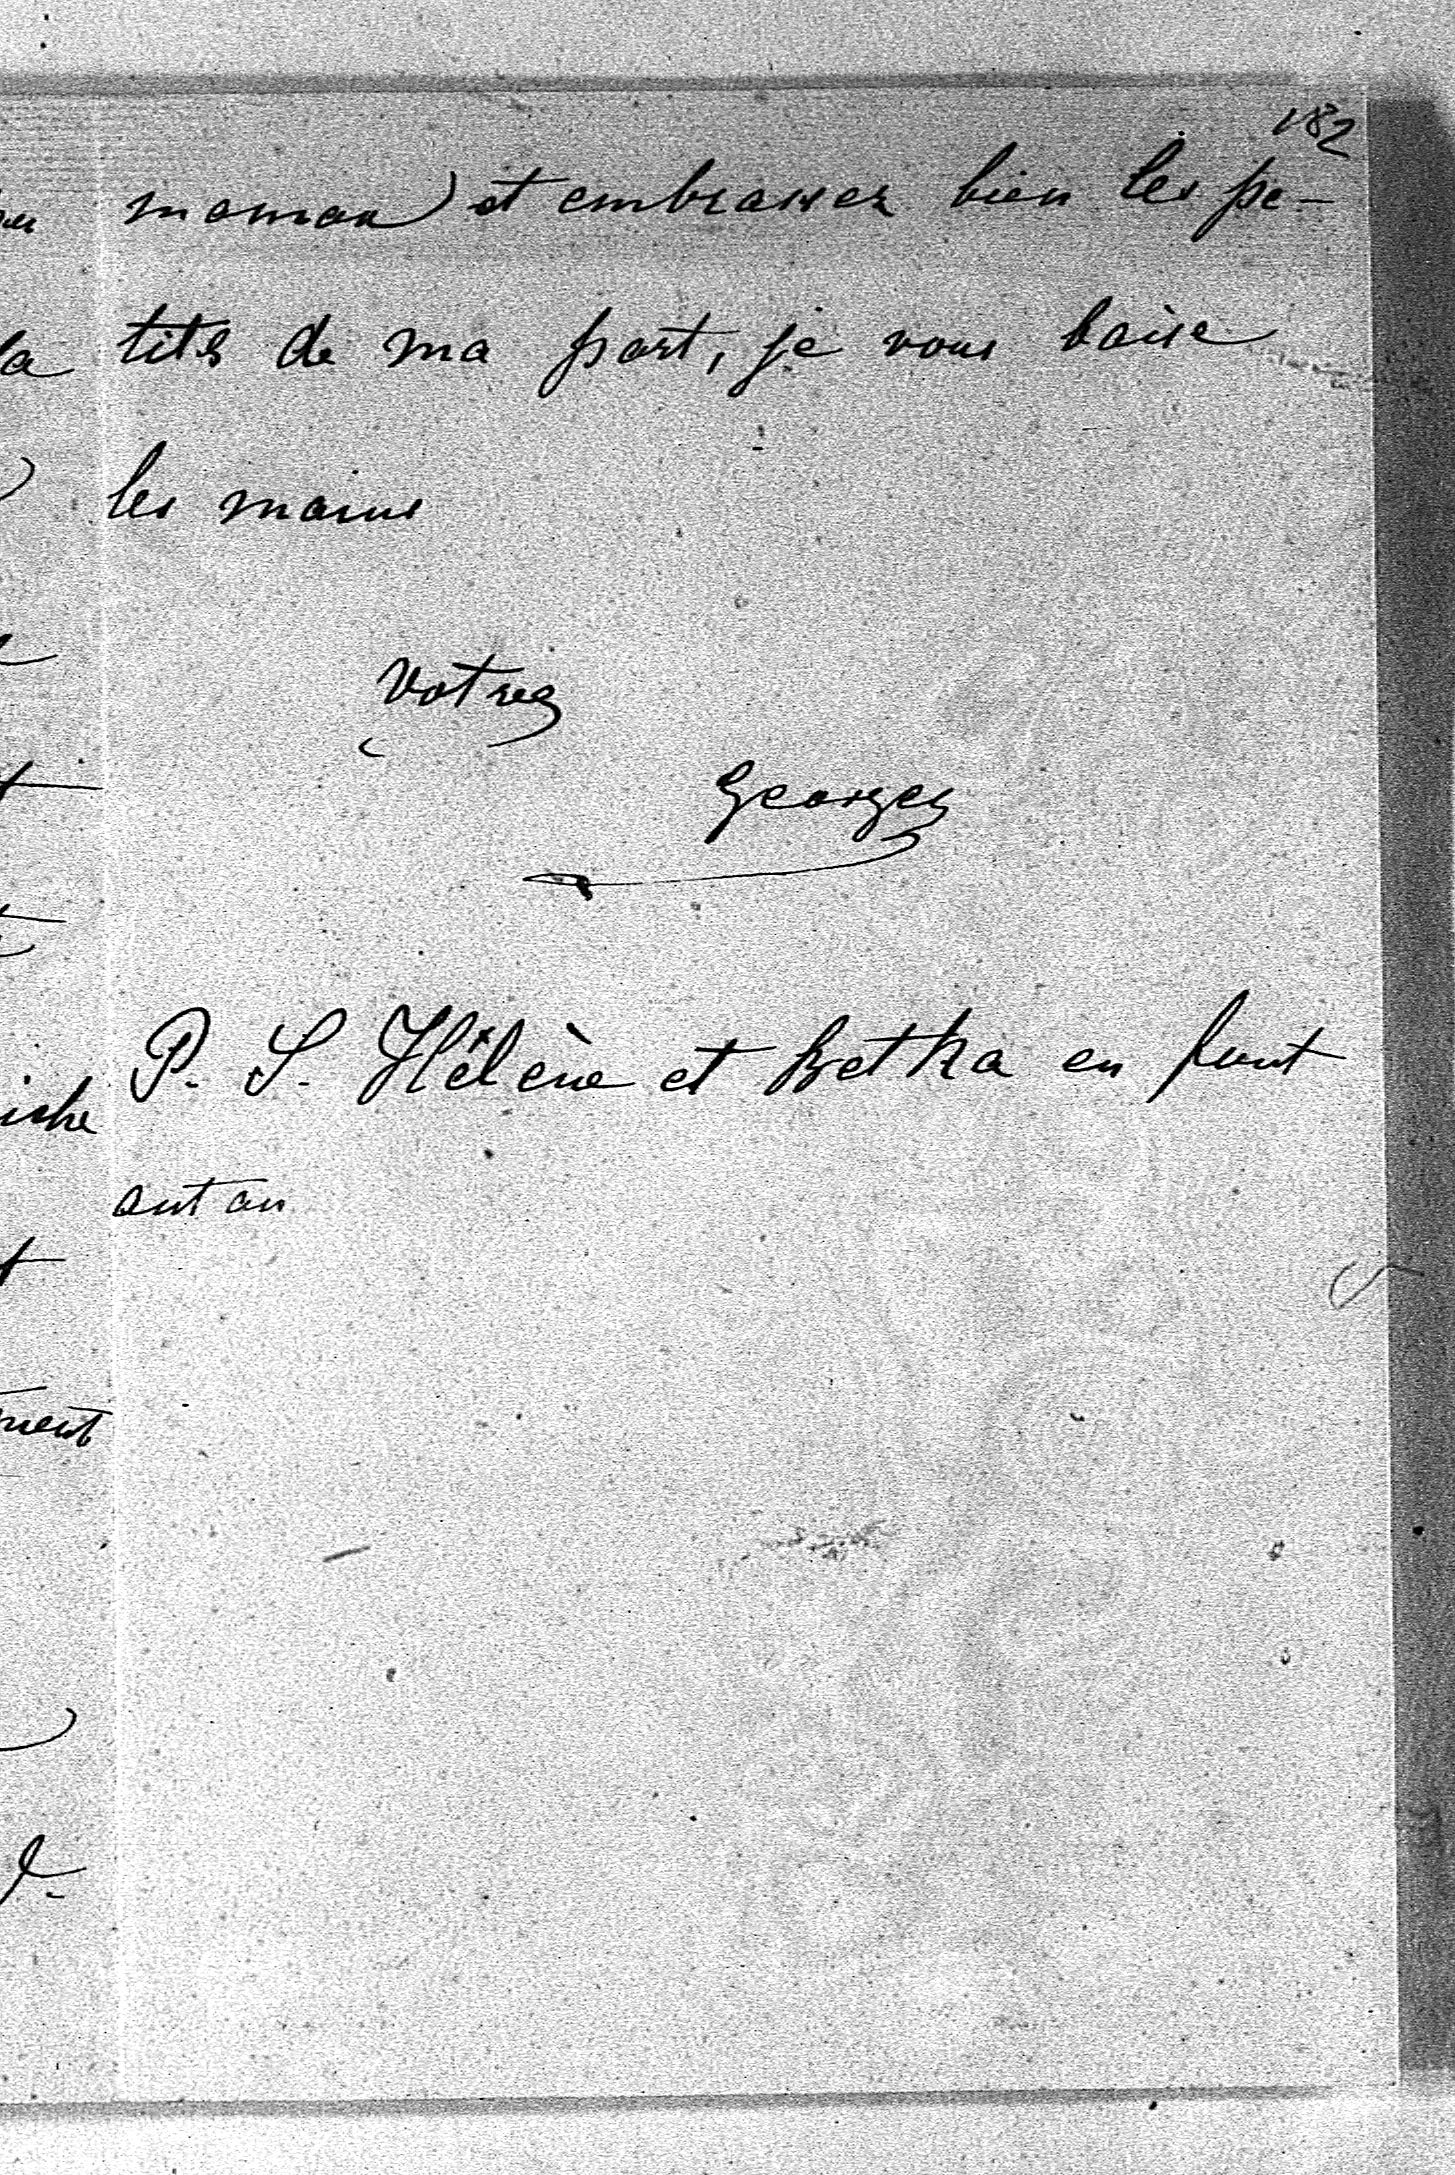 182
maman) et embrasser bien les pe-
tits de ma part, je vous baise
les mains
Votre
Georges
P. S. Hélène et Betka en font
autan